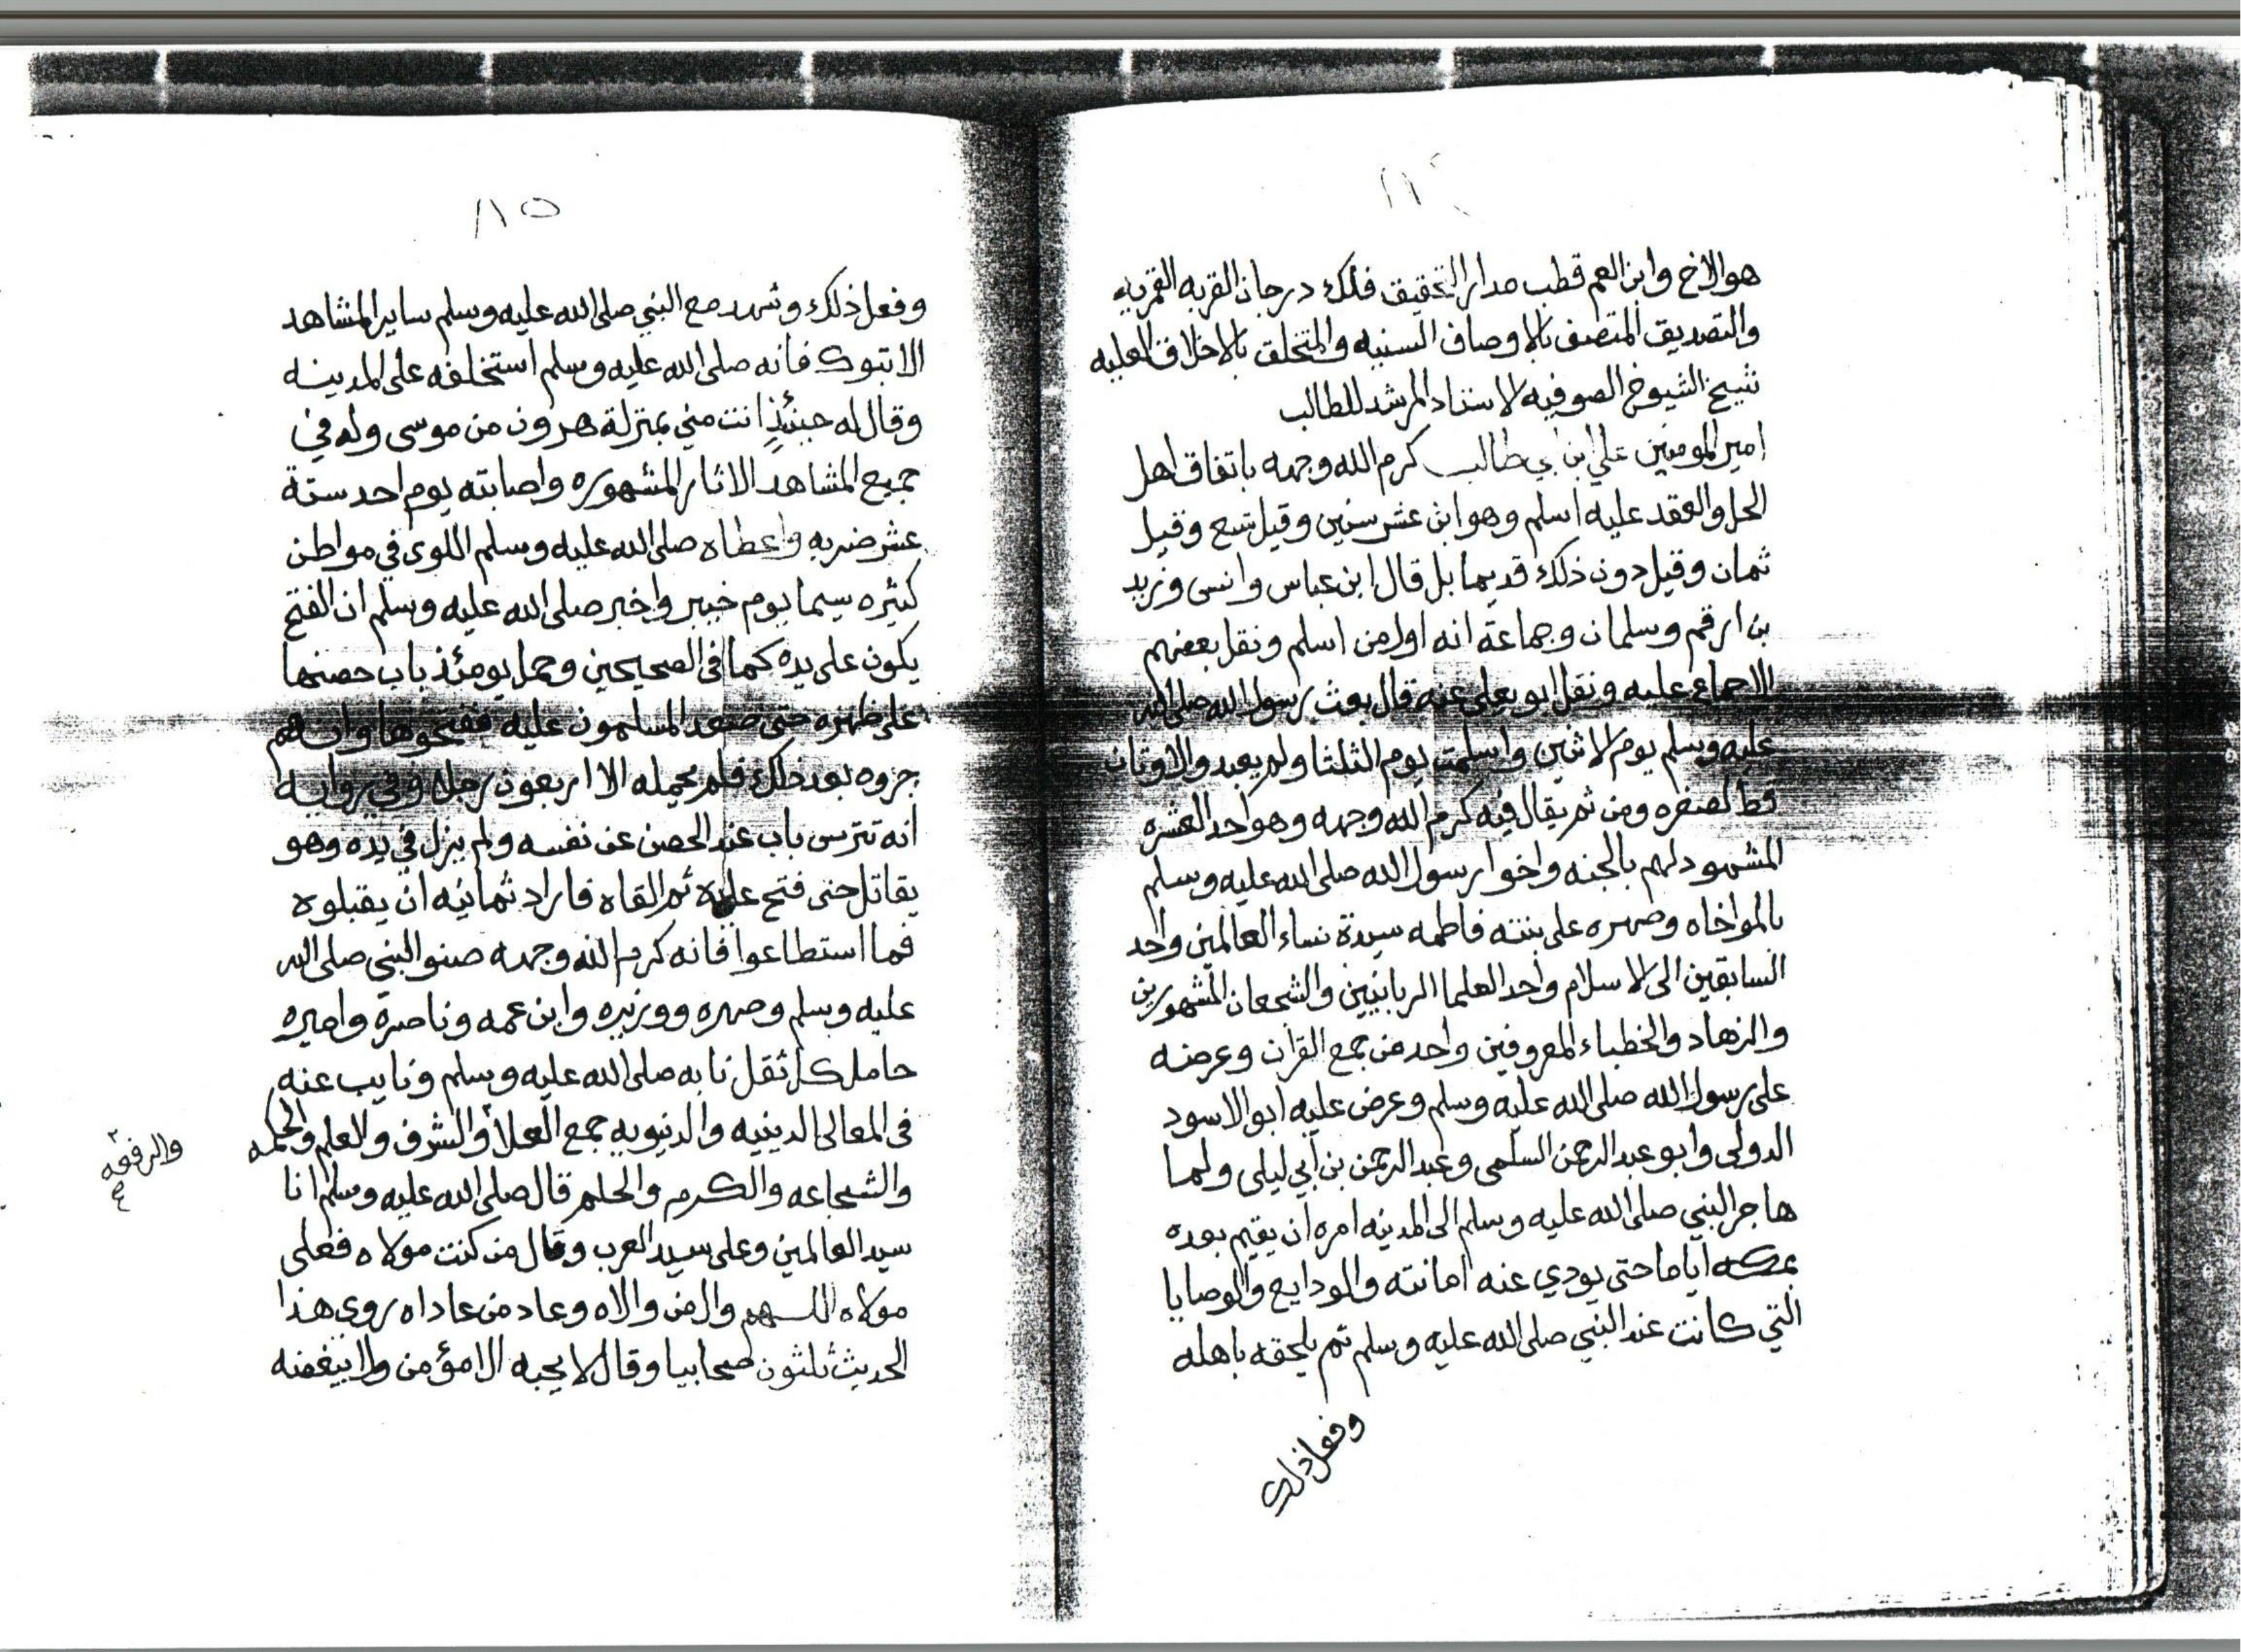 هو الاخ وابن العم قطب مدار التحقيق فلك درجات القربه القربه
والتصديق المتصف بالاوصاف السنيه والمتخلق بالاخلاق العليه
شيخ الشيوخ الصوفيه الاستاد المرشد للطالب
امير المومنين علي ابن ابي طالب كرم الله وجهه باتفاق اهل
الحل والعقد عليه اسلم وهو ابن عشر سنين وقيل تسع وقيل
ثمان وقيل دون ذلك قديما بل قال ابن عباس وانس وزيد
بن ارقم وسلمان وجماعة انه اول من اسلم ونقل بعضهم
الاجماع عليه ونقل ابو يعلى عنه قال بعث رسول الله صلى الله
عليه وسلم يوم الاثنين واسلمت يوم الثلثا ولم يعبد والاوثان
قط لصغره ومن ثم يقال فيه كرم الله وجهه وهو احد العشره
المشهود لهم بالجنه واخوا رسول الله صلى الله عليه وسلم
بالمواخاه وصهره على بنته فاطمه سيدة نساء العالمين واحد
السابقين الى الاسلام واحد العلما الربانيين والشجعان المشهورين
والزهاد والخطباء المعروفين واحد من جمع القران وعرضه
على رسول الله صلى الله عليه وسلم وعرض عليه ابو الاسود
الدولى وابو عبد الرحمن السلمى وعبد الرحمن بن ابي ليلى ولما
هاجر النبي صلى الله عليه وسلم الى المدينه امره ان يقيم بعده
بمكه اياما حتى يودي عنه امانته والودايع والوصايا
التي كانت عند النبي صلى الله عليه وسلم ثم يلحقه باهله
وفعل ذلك
١١٥
وفعل ذلك وشهد مع النبي صلى الله عليه وسلم ساير المشاهد
الا تبوك فانه صلى الله عليه وسلم استخلفه على المدينه
وقال له حينئذ انت مني بمنزلة هرون من موسى وله في
جميع المشاهد الاثار المشهوره واصابته يوم احد ستة
عشر ضربه واعطاه صلى الله عليه وسلم اللوى في مواطن
كثيره سيما يوم خيبر واخبر صلى الله عليه وسلم ان الفتح
يكون على يده كما فى الصحيحين وحمل يومئذ باب حصنها
على ظهره حتى صعد المسلمون عليه ففتحوها وانهم
جروه بعد ذلك فلم يحمله الا اربعون رجلا وفي روايه
انه تترس باب عند الحصن عن نفسه ولم يزل في يده وهو
يقاتل حتى فتح عليه ثم القاه فاراد ثمانيه ان يقبلوه
فما استطاعوا فانه كرم الله وجهه صنو النبي صلى الله
عليه وسلم وصهره ووزيره وابن عمه وناصرة واميره
حامل كل ثقل نابه صلى الله عليه وسلم ونايب عنه
فى المعالى الدينيه والدنيويه جمع العلا والشرف والعلم والحكمه
والرفعه
والشجاعه والكرم والحلم قال صلى الله عليه وسلم انا
سيد العالمين وعلى سيد العرب وقال من كنت مولاه فعلى
مولاه اللهم وال من والاه وعاد من عاداه روى هذا
الحديث ثلثون صحابيا وقال لا يحبه الا مؤمن ولا يبغضه